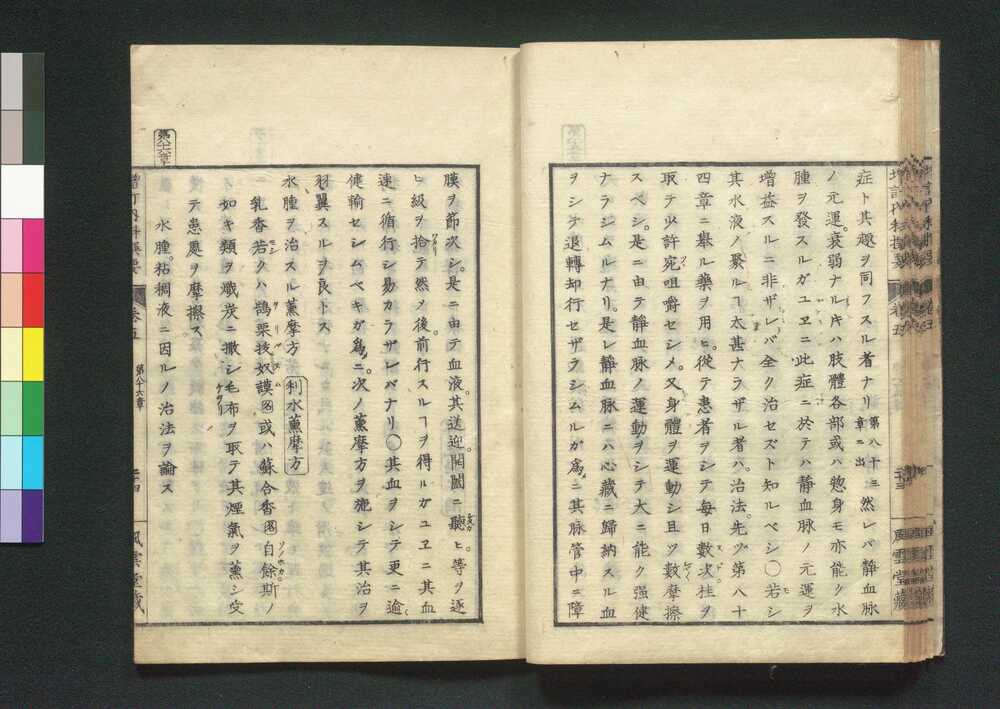 症ト其趣ヲ同フスル者ナリ 第八十三章ニ出 然レバ靜血脉
ノ元運。衰弱ナルキハ肢體各部或ハ惣身モ亦能ク水
腫ヲ發スルガユヱニ此症ニ於テハ靜血脉ノ元運ヲ
增益スルニ非ザレバ全ク治セズト知ルベシ〇若シ
其水液ノ聚ルヿ太甚ナラザル者ハ。治法。先ヅ第八十
四章ニ舉ル藥ヲ用ヒ。從テ患者ヲシテ每日數次桂ヲ
取テ少許宛咀嚼セシメ。又身體ヲ運動シ且ツ數摩擦
スベシ。是ニ由テ靜血脉ノ運動ヲシテ大ニ能ク强健
ナラシムルナリ。是レ靜血脉ニハ心藏ニ歸納スル血
ヲシテ退轉却行セザラシムルガ爲ニ其脉管中ニ障
膜ヲ節次シ。是ニ由テ血液。其送迎開闔ニ聽ヒ。等ヲ逐
ヒ級ヲ拾テ然メ後。前行スルヿヲ得ルガユヱニ其血
速ニ循行シ易カラザレバナリ〇其血ヲシテ更ニ遒
健輸セシムベキガ爲ニ。次ノ薰摩方ヲ施シテ其治ヲ
羽翼スルヲ良トス
水腫ヲ治スル薰摩方 利水薰摩方
乳香若クハ鵠栗技奴謨図或ハ蘇合香図白餘斯ノ
如キ類ヲ熾炭ニ撒シ毛布ヲ取テ其煙氣ヲ薰シ受
後テ患處ヲ摩擦ス
水腫。粘稠液ニ因ルノ治法ヲ論ス
卷五
第八十六章
二十四
風雲堂藏